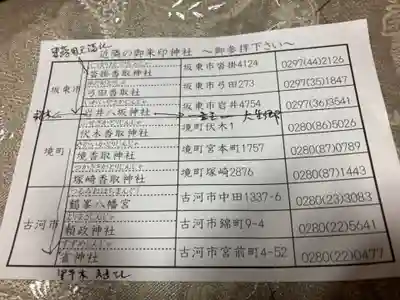 近隣の御朱印神社 ～御参拝下さい～
坂東市
沓掛香取神社 坂東市沓掛4124 0297(44)2126
弓田香取神社 坂東市弓田273 0297(35)1847
岩井八坂神社 坂東市岩井4754 0297(36)3541
境町
伏木香取神社 境町伏木1 0280(86)5026
境香取神社 境町宮本町1757 0280(87)0789
塚崎香取神社 境町塚崎2876 0280(87)1443
古河市
つるみねはちまんぐう
鶴峯八幡宮 古河市中田1337-6 0280(23)3083
よりまさじんじゃ
頼政神社 古河市錦町9-4 0280(22)5641
すずめじんじゃ
雀神社 古河市宮前町4-52 0280(22)0477